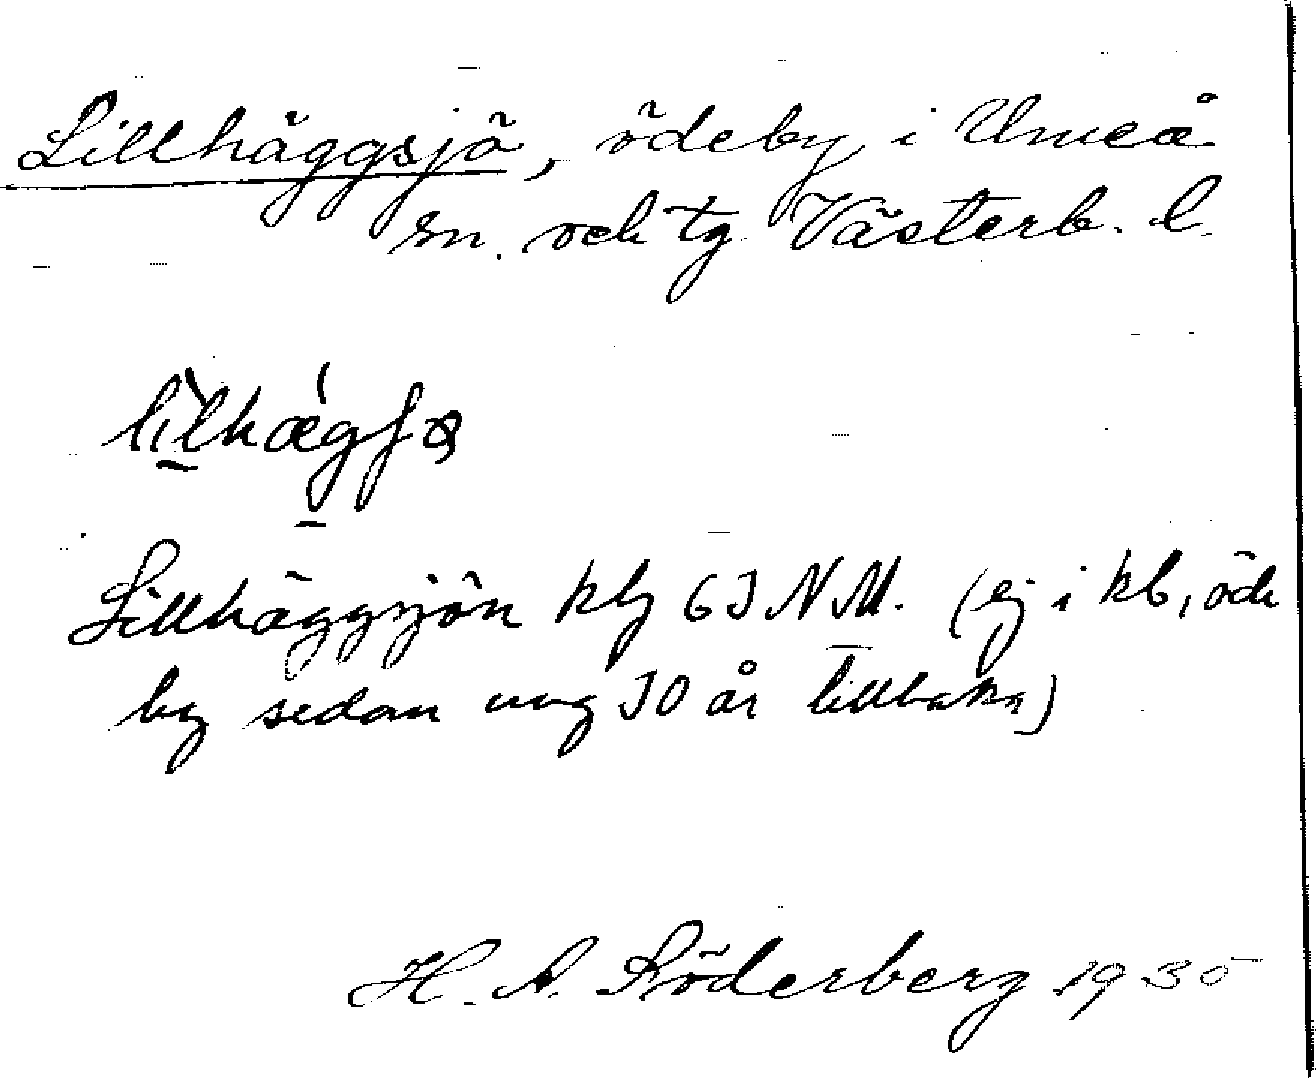 Lillhäggsjö, ödeby i Umeå
sn. och tg Västerb. l.
Lillhäggsjön kbl 63 NM. (ej i kb, öde
by sedan ung 30 år tillbaka)
H. A. Söderberg 1935